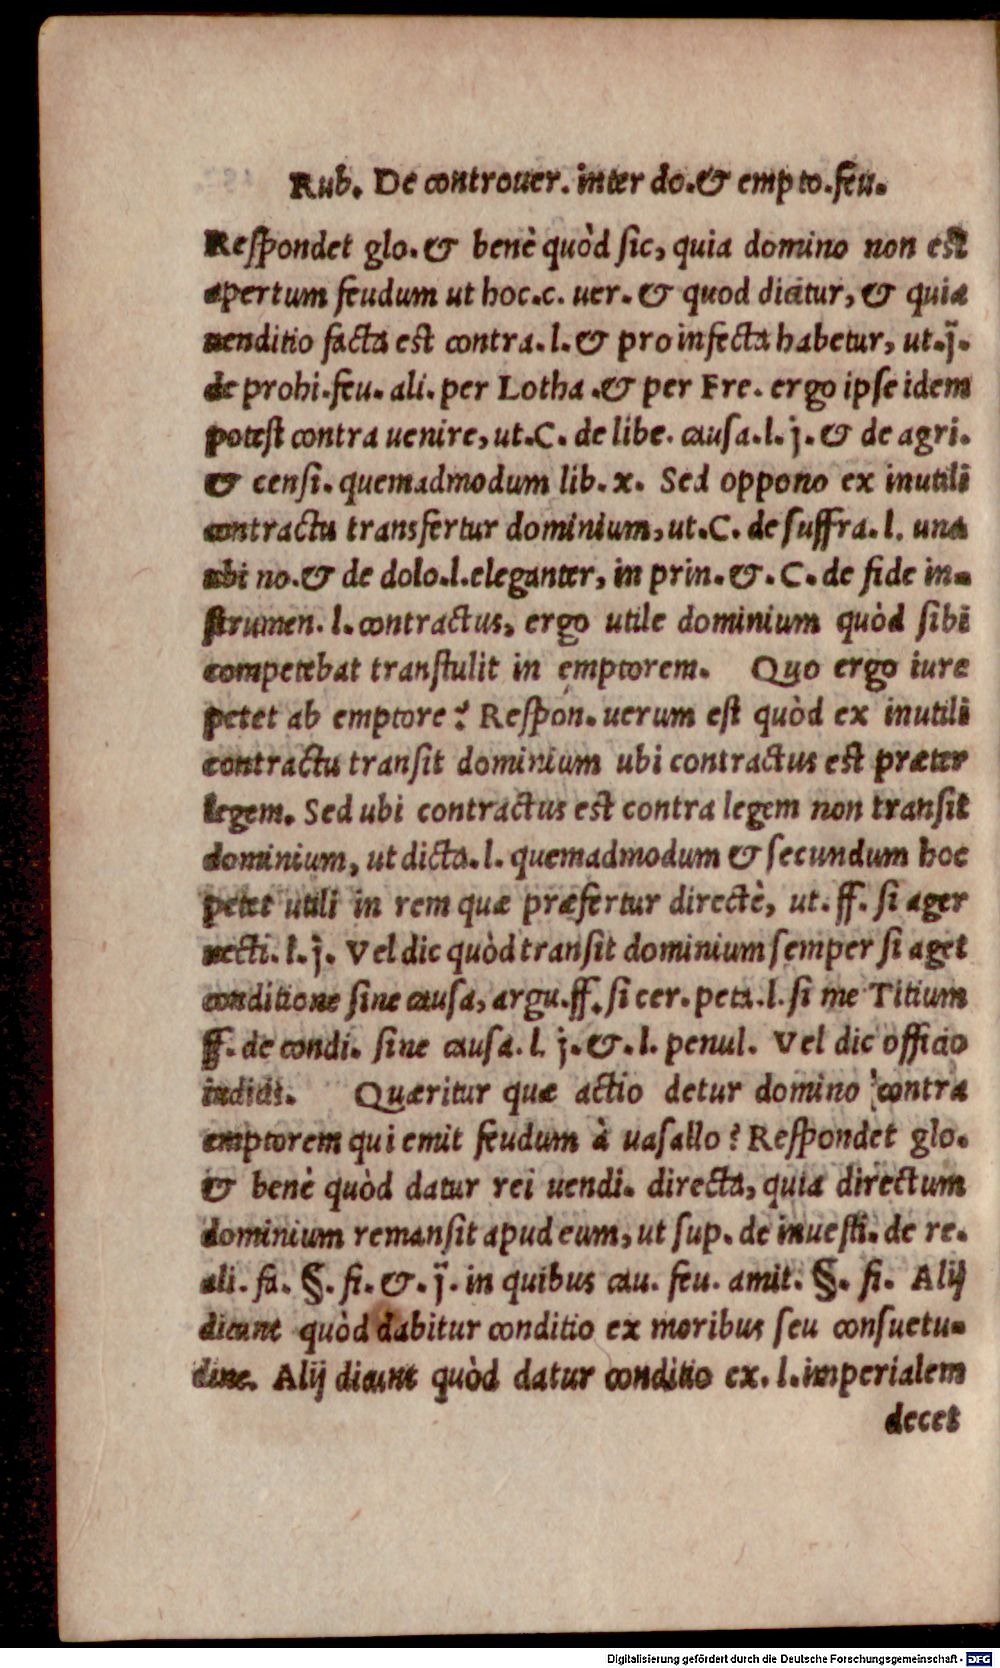 Rub. De controuer. inter do. & empto. feu.
Respondet glo. & benè quòd sic, quia domino non est
apertum feudum ut hoc. c. uer. & quod dicitur, & quia
uenditio facta est contra. l. & pro infecta habetur, ut. j.
de prohi. feu. ali. per Lotha. & per Fre. ergo ipse idem
potest contra uenire, ut. C. de libe. causa. l. j. & de agri.
& censi. quemadmodum lib. x. Sed oppono ex inutili
contractu transfertur dominium, ut. C. de suffra. l. una
ubi no. & de dolo. l. eleganter, in prin. &. C. de fide in-
strumen. l. contractus, ergo utile dominium quòd sibi
competebat transtulit in emptorem. Quo ergo iure
petet ab emptore? Respon. uerum est quòd ex inutili
contractu transit dominium ubi contractus est præter
legem. Sed ubi contractus est contra legem non transit
dominium, ut dicta. l. quemadmodum & secundum hoc
petet utili in rem quæ præfertur directè, ut. ff. si ager
uecti. l. j. Vel dic quòd transit dominium semper si aget
conditione sine causa, argu. ff. si cer. peta. l. si me Titium
ff. de condi. sine causa. l. j. &. l. penul. Vel dic officio
iudicis. Quæritur quæ actio detur domino contra
emptorem qui emit feudum à uasallo? Respondet glo.
& benè quòd datur rei uendi. directa, quia directum
dominium remansit apud eum, ut sup. de inuesti. de re.
ali. fa. §. fi. &. j. in quibus cau. feu. amit. §. fi. Alij
dicunt quòd dabitur conditio ex moribus seu consuetu-
dine. Alij dicunt quòd datur conditio ex. l. imperialem
decet
Digitalisierung gefördert durch die Deutsche Forschungsgemeinschaft - DFG